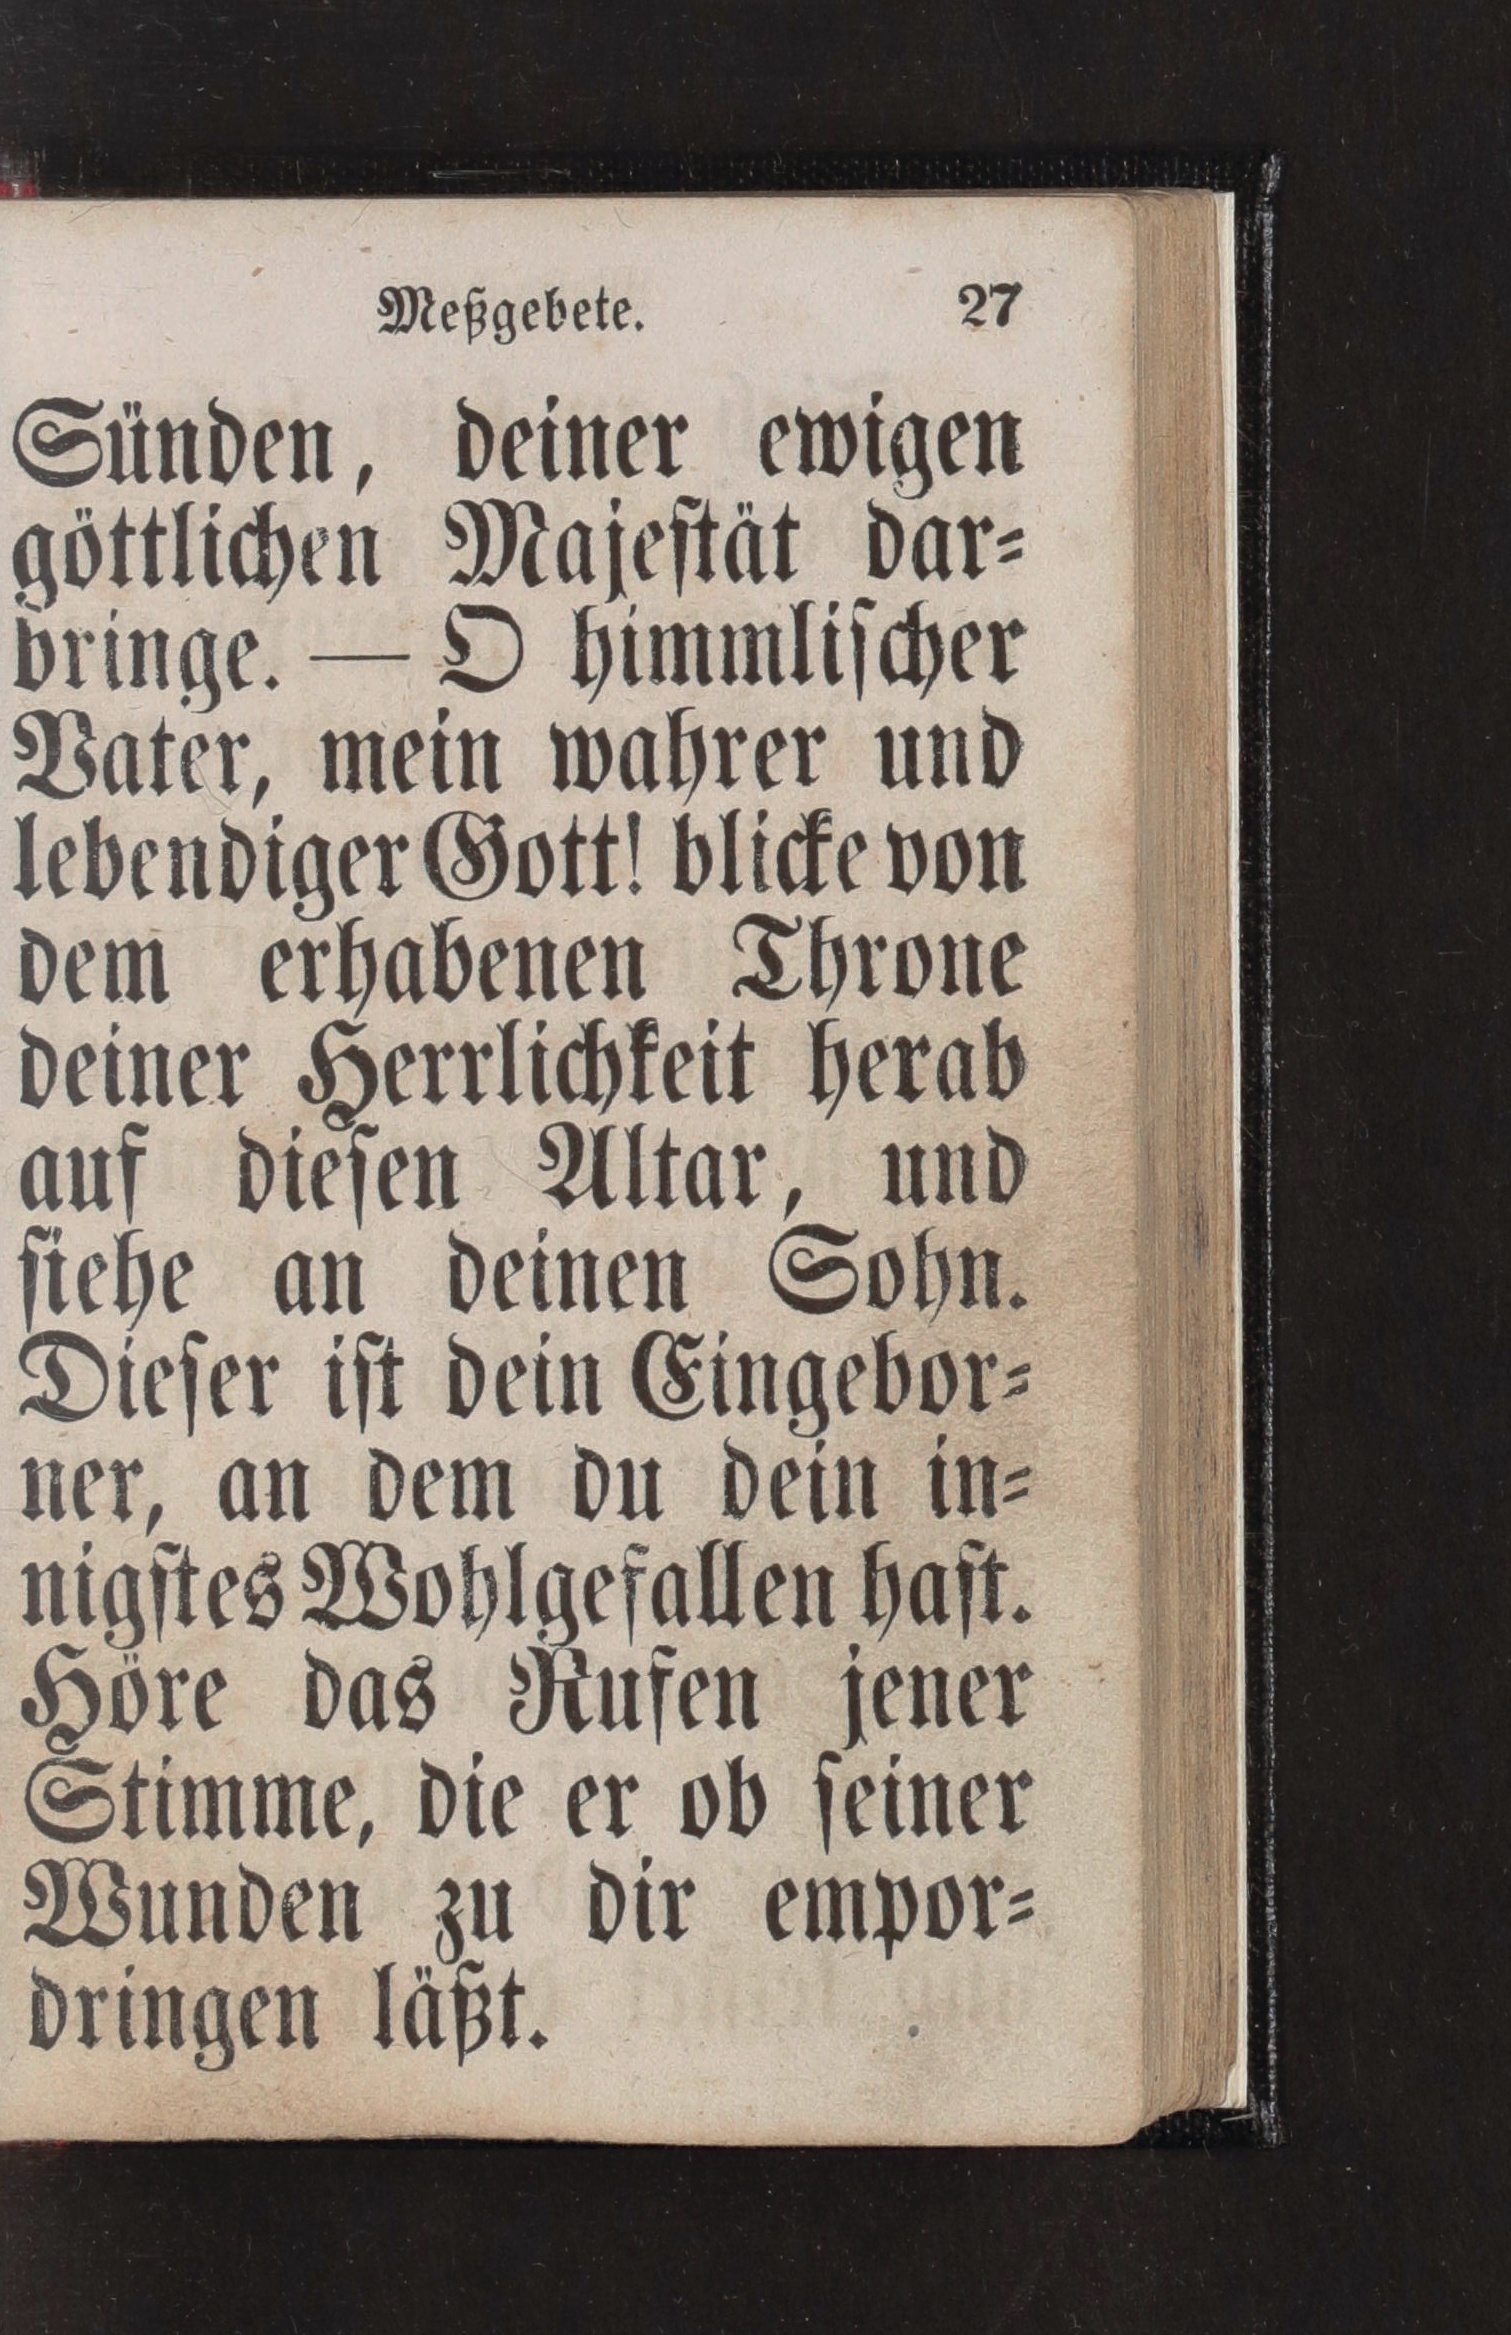 Meßgebete. 27
Sünden, deiner ewigen
göttlichen Majeſtät dar⸗
bringe. — O himmliſcher
Vater, mein wahrer und
lebendiger Gott! blicke von
dem erhabenen Throne
deiner Herrlichkeit herab
auf dieſen Altar, und
ſiehe an deinen Sohn.
Dieſer iſt dein Eingebor⸗
ner, an dem du dein in⸗
nigſtes Wohlgefallen haſt.
Höre das Rufen jener
Stimme, die er ob ſeiner
Wunden zu dir empor⸗
dringen läßt.